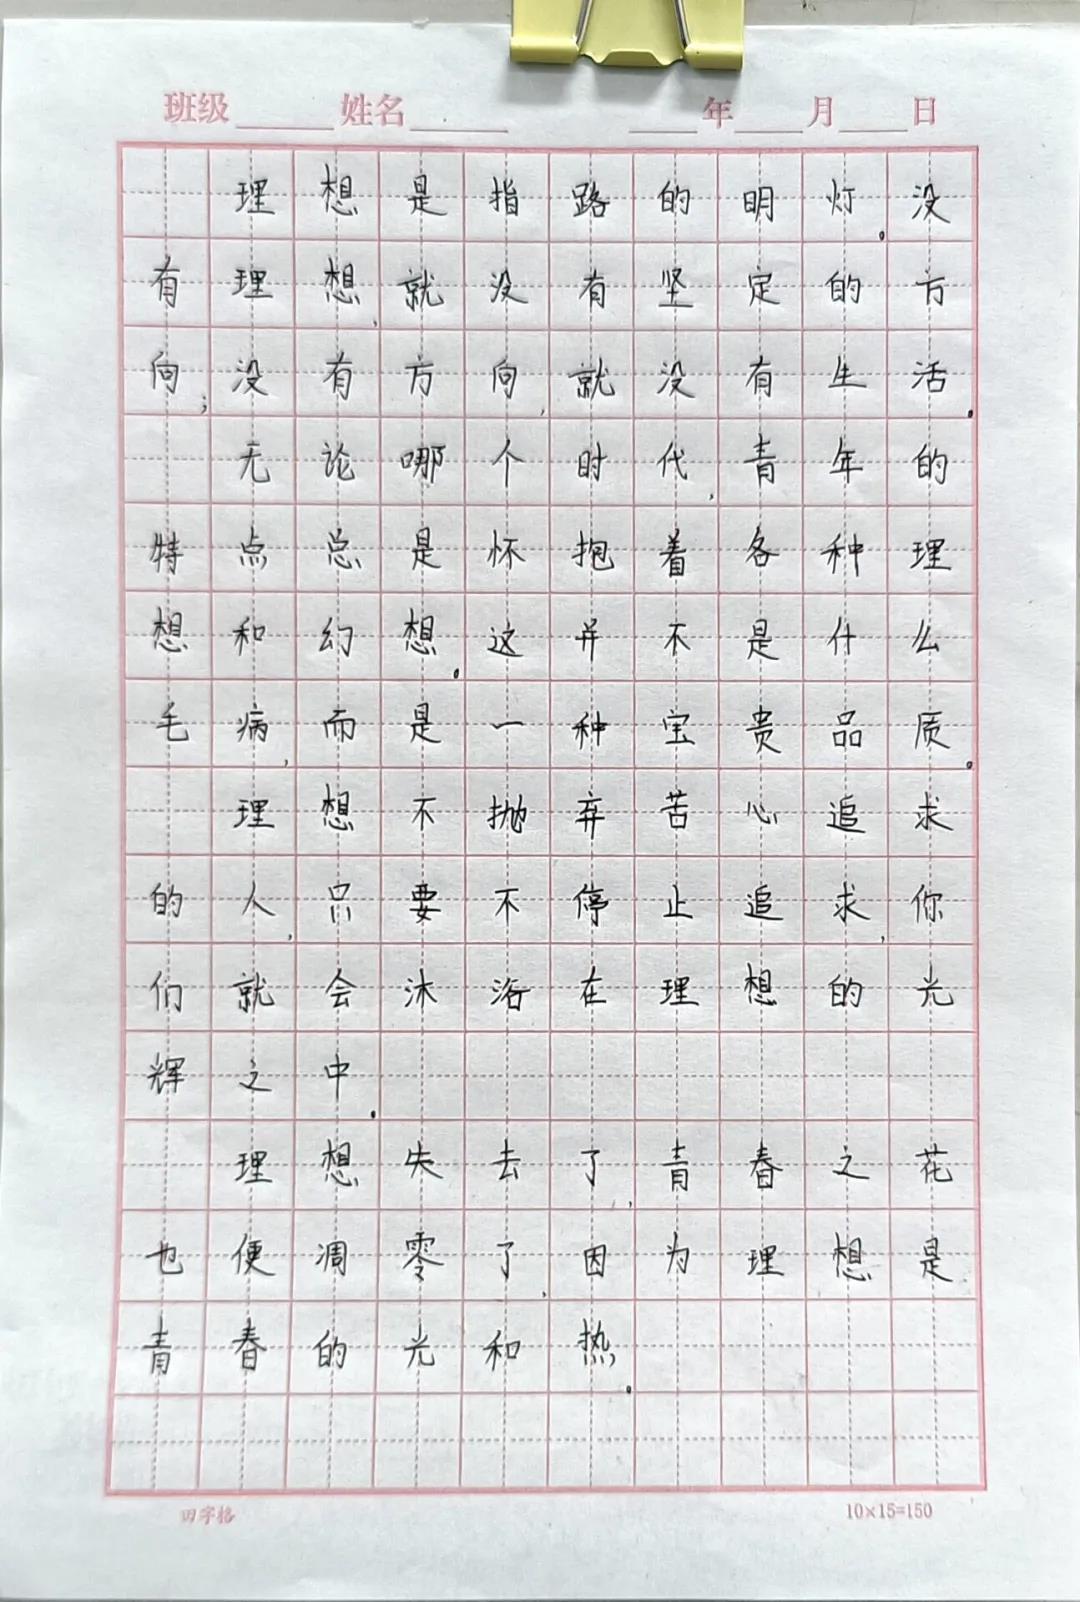 班级 姓名 年 月 日
理想是指路的明灯。没
有理想,就没有坚定的方
向;没有方向,就没有生活。
无论哪个时代,青年的
特点总是怀抱着各种理
想和幻想。这并不是什么
毛病,而是一种宝贵品质。
理想不抛弃苦心追求
的人,只要不停止追求,你
们就会沐浴在理想的光
辉之中。
理想失去了,青春之花
也便凋零了,因为理想是
青春的光和热。
田字格 10×15=150